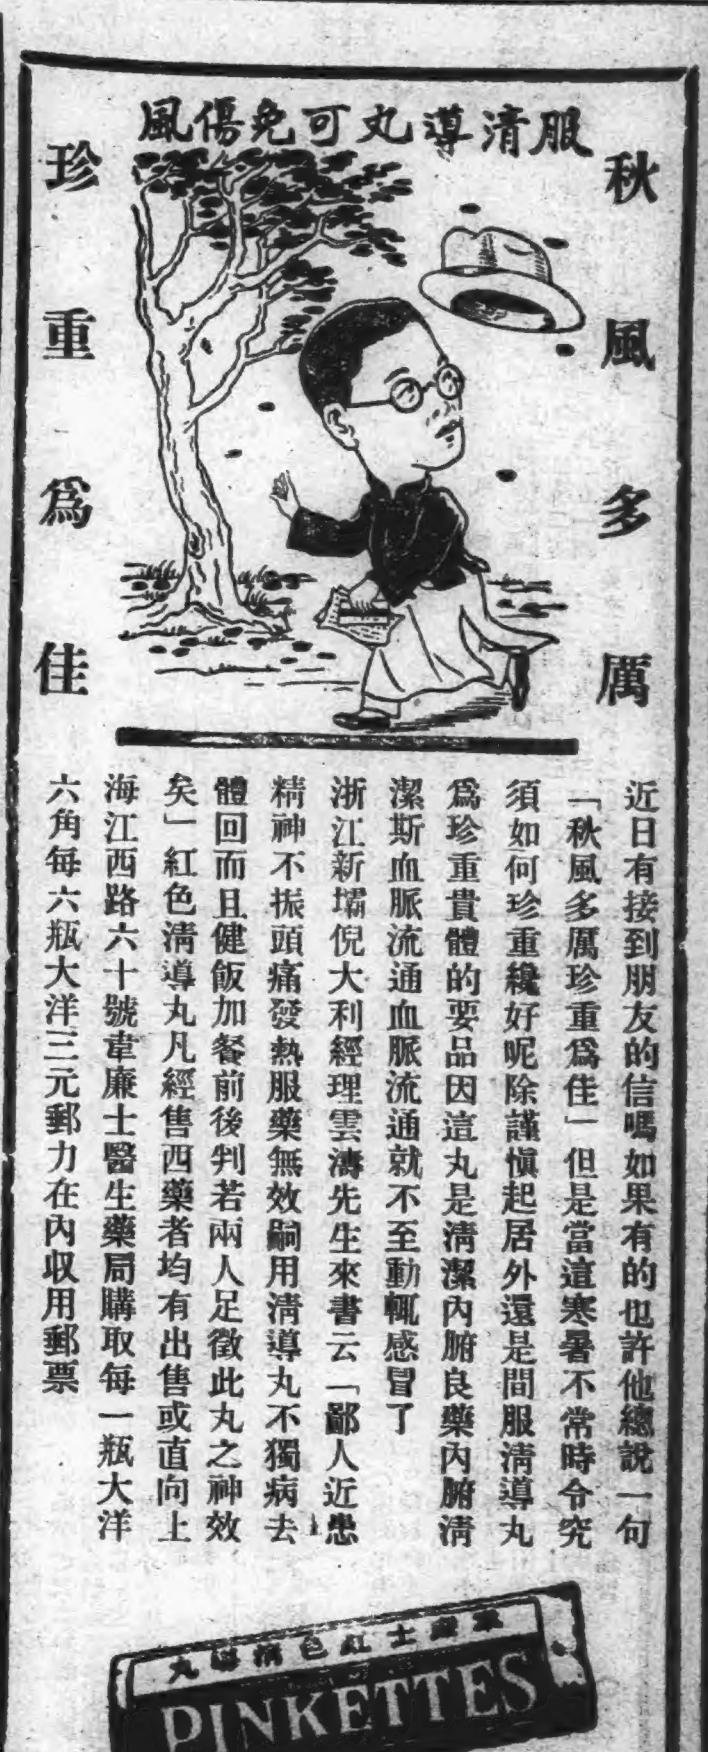 服清導丸可免傷風
秋風多厲
珍重爲佳
近日有接到朋友的信嗎如果有的也許他總說一句
「秋風多厲珍重爲佳」但是當這寒暑不常時令究
須如何珍重纔好呢除謹愼起居外還是間服淸導丸
爲珍重貴體的要品因這丸是淸潔內腑良藥內腑淸
潔斯血脈流通血脈流通就不至動輒感冒了
浙江新壩倪大利經理雲濤先生來書云「鄙人近患
精神不振頭痛發熱服藥無效嗣用淸導丸不獨病去
體回而且健飯加餐前後判若兩人足徵此丸之神效
矣」紅色淸導丸凡經售西藥者均有出售或直向上
海江西路六十號韋廉士醫生藥局購取每一瓶大洋
六角每六瓶大洋三元郵力在內收用郵票
韋廉士紅色清導丸
PINKETTES